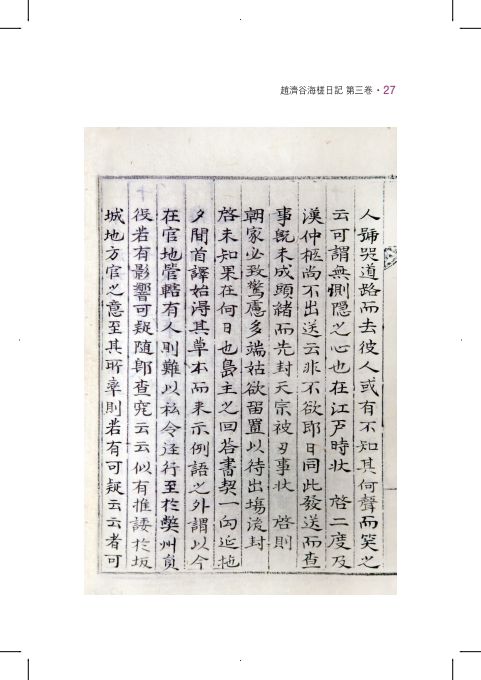 趙濟谷海槎日記 第三卷 · 27
人號哭道路而去彼人或有不知其何聲而笑之
云可謂無惻隱之心也在江戶時狀 啓二度及
漢仲柩尙不出送云非不欲卽日同此發送而査
事旣未成頭緖而先封天宗被刃事狀 啓則
朝家必致驚慮多端姑欲留置以待出場後封
啓未知果在何日也島主之回答書契一向延拖
夕間首譯始得其草本而來示例語之外謂以今
在官地管轄有人則難以私令逕行至於弊州員
役若有影響可疑隨卽査究云云似有推諉於坂
城地方官之意至其所率則若有可疑云云者可